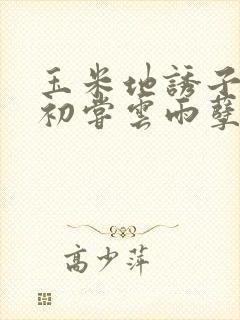 玉米地誘子
初嘗雲雨孽
高少萍